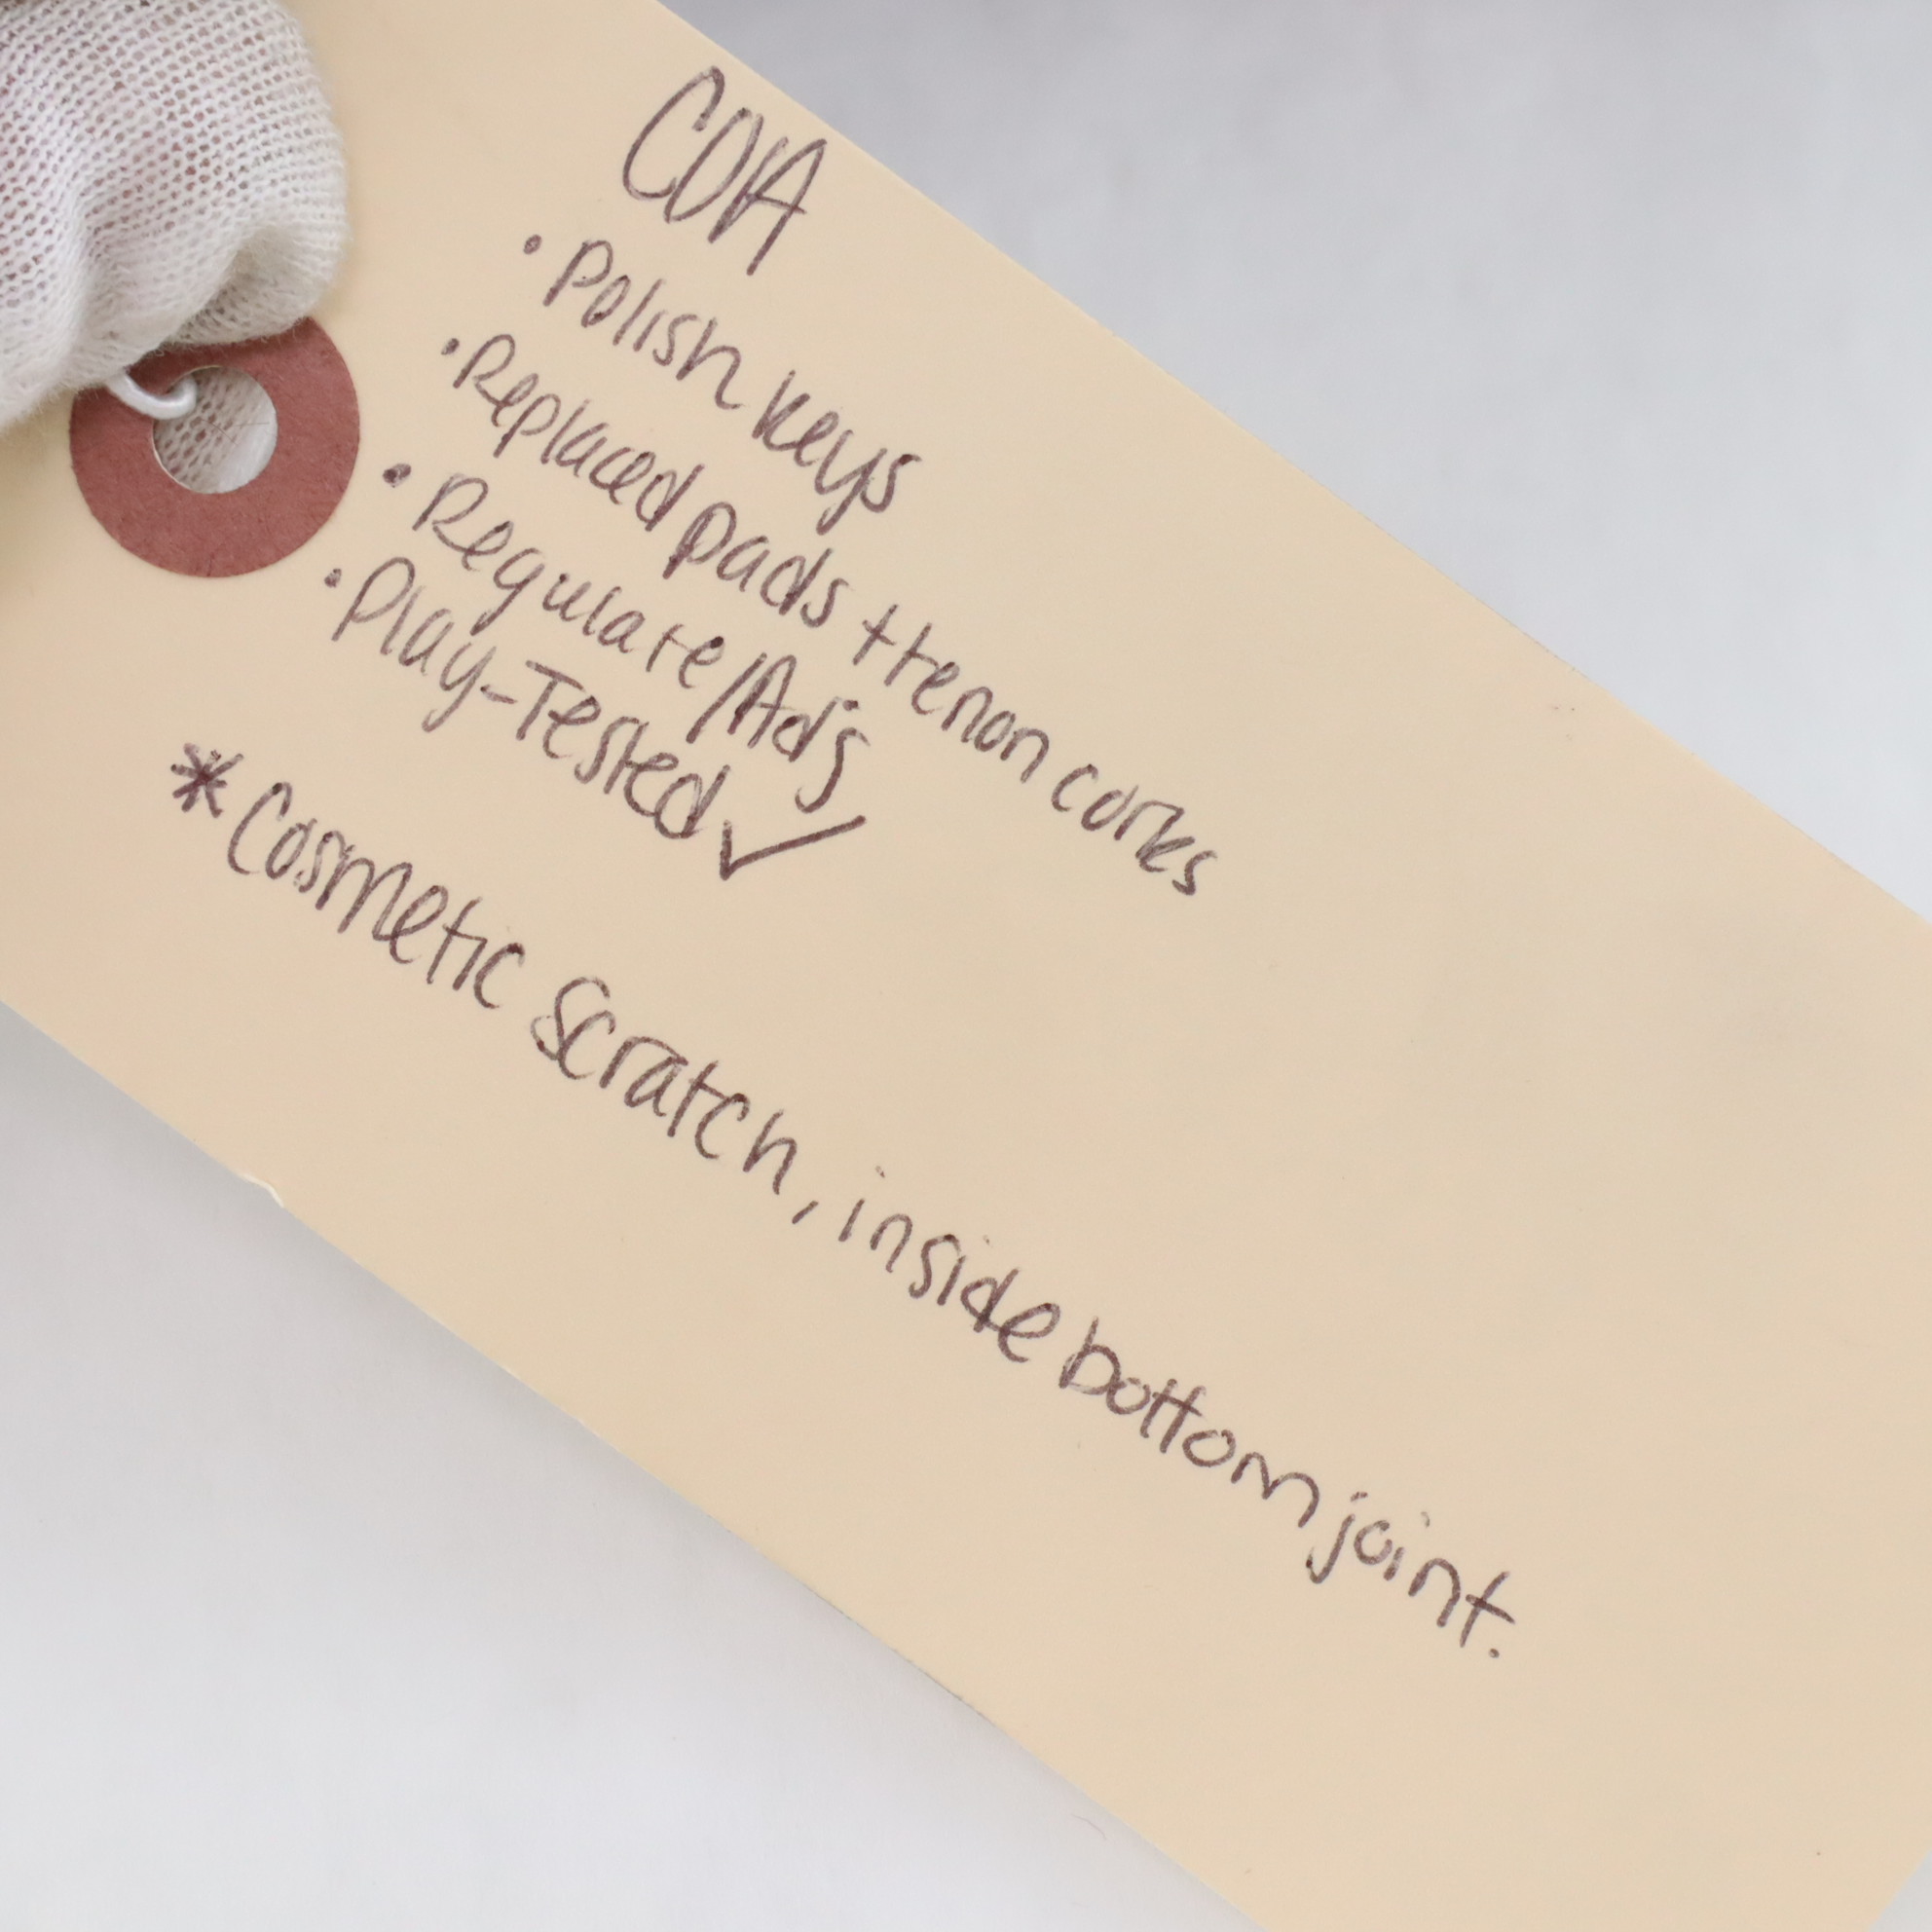 COA
• Polish keys
• Replaced pads + tenon corks
• Regulate/Adj
• Play-Tested ✓
* Cosmetic scratch, inside bottom joint.